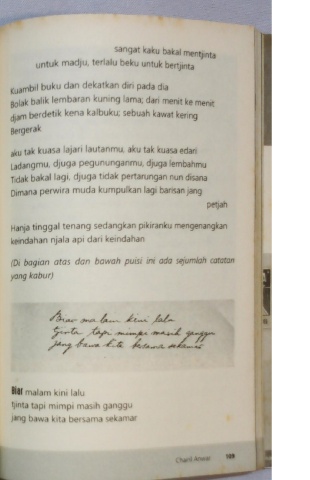 sangat kaku bakal mentjinta
untuk madju, terlalu beku untuk bertjinta
Kuambil buku dan dekatkan diri pada dia
Bolak balik lembaran kuning lama; dari menit ke menit
djam berdetik kena kalbuku; sebuah kawat kering
Bergerak
aku tak kuasa lajari lautanmu, aku tak kuasa edari
Ladangmu, djuga pegununganmu, djuga lembahmu
Tidak bakal lagi, djuga tidak pertarungan nun disana
Dimana perwira muda kumpulkan lagi barisan jang
petjah
Hanja tinggal tenang sedangkan pikiranku mengenangkan
keindahan njala api dari keindahan
(Di bagian atas dan bawah puisi ini ada sejumlah catatan
yang kabur)
Biar malam kini lalu
tjinta tapi mimpi masih ganggu
jang bawa kita bersama sekamar
Biar malam kini lalu
tjinta tapi mimpi masih ganggu
jang bawa kita bersama sekamar
Chairil Anwar 109